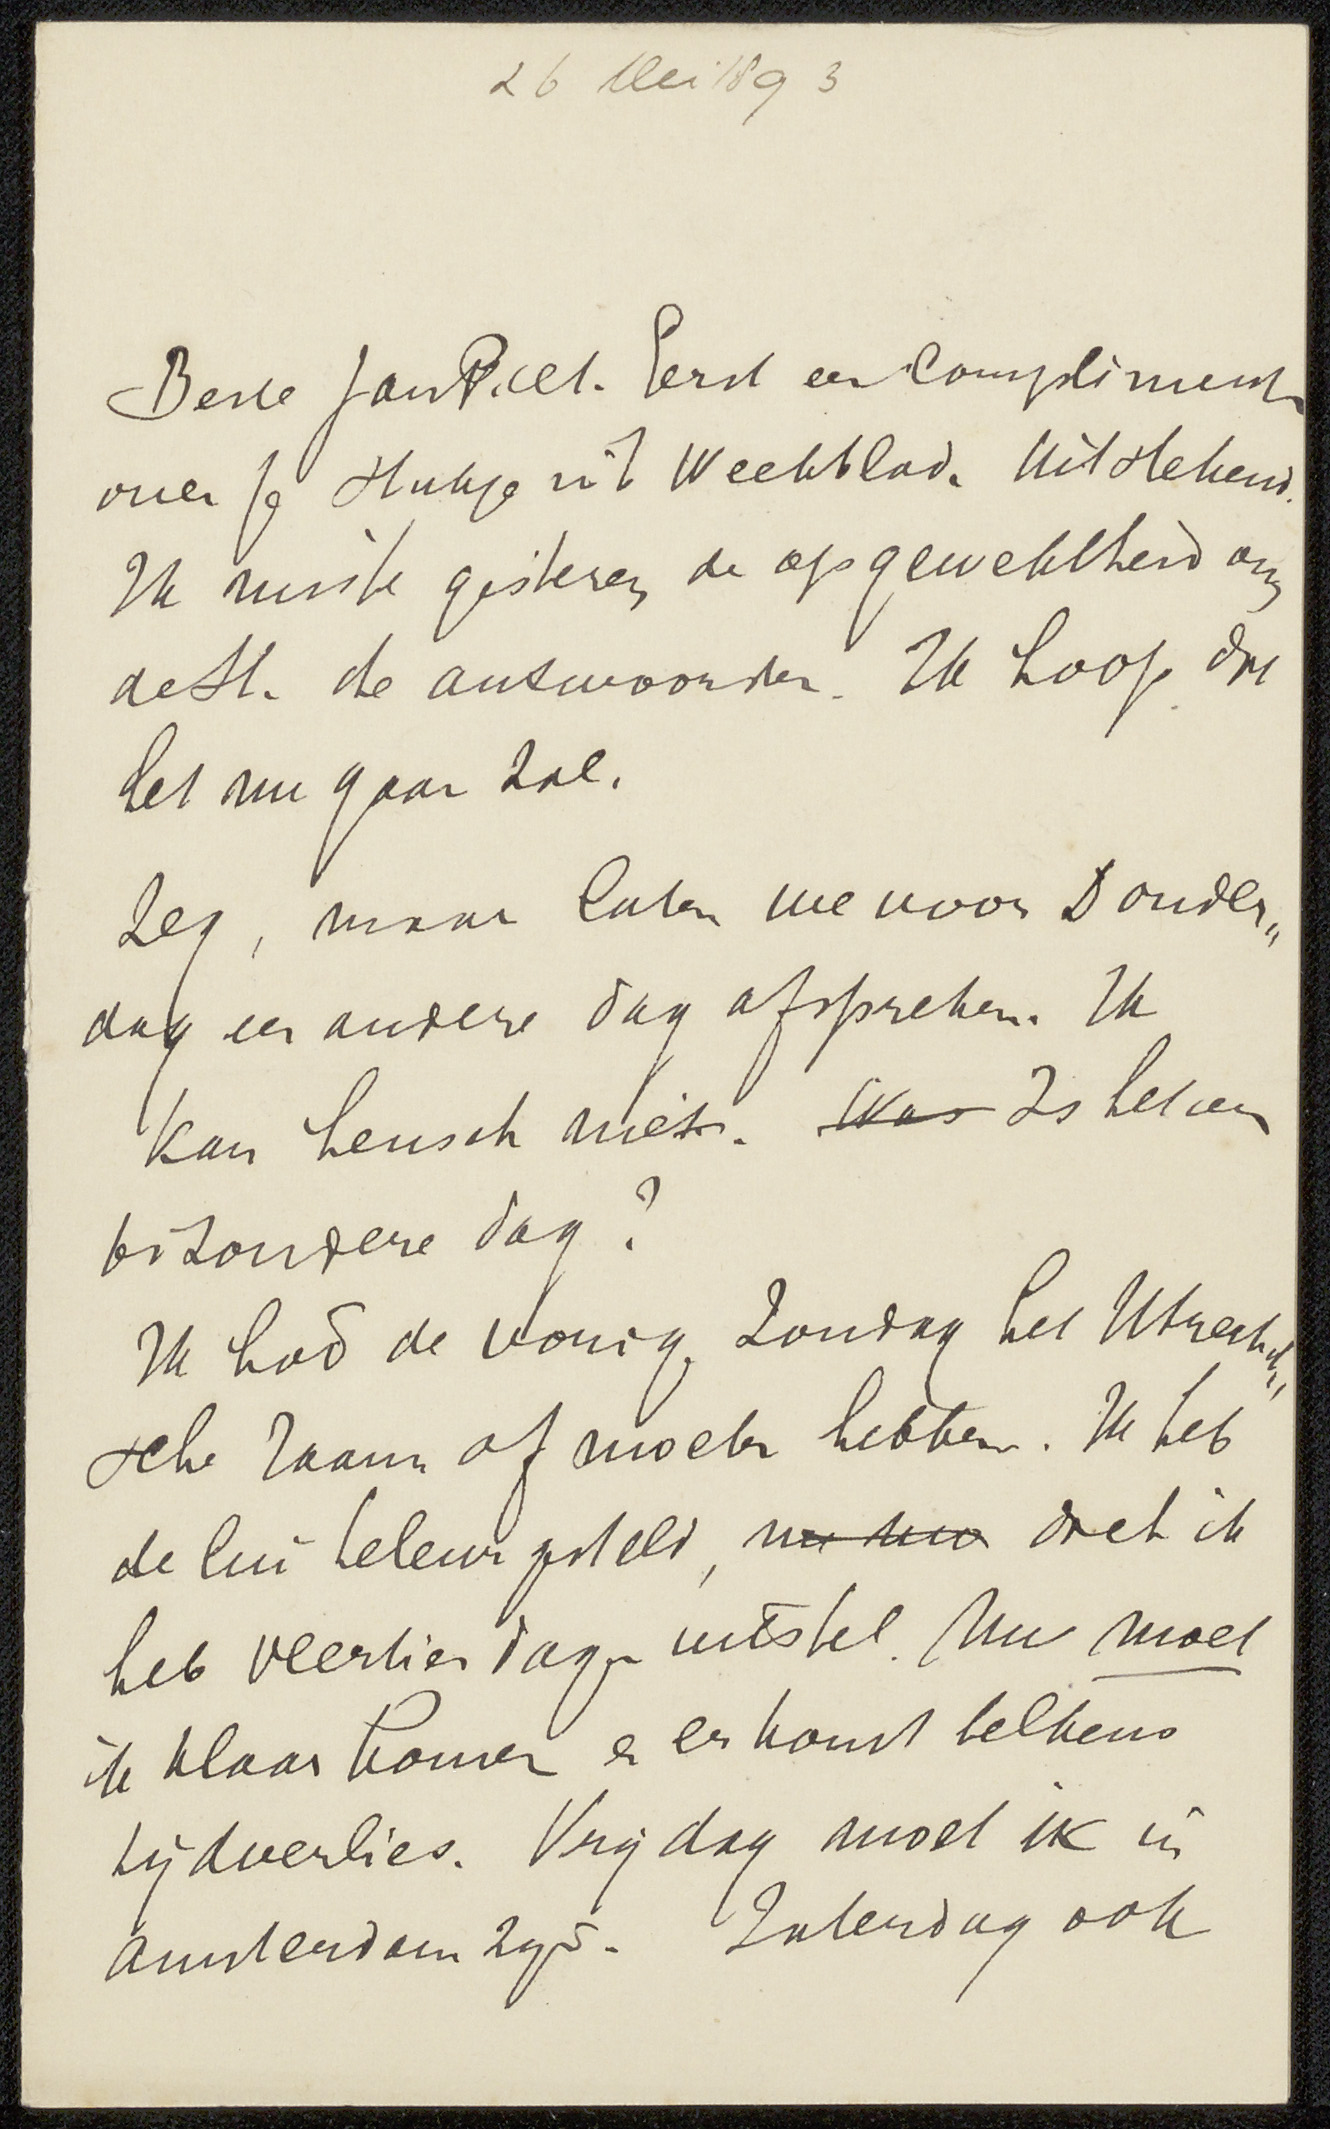 26 Mei 1893
Beste Jan Piet. Eerst een compliment
over je stukje in 't Weekblad. Uitstekend.
Ik miste gisteren de opgewektheid om
de St. te antwoorden. Ik hoop dat
het nu gaan zal.
Zeg, maar laten we voor Donder„
dag een andere dag afspreken. Ik
kan heusch niet. Was Is het een
bizondere dag?
Ik had de vorige Zondag het Utrecht„
sche raam af moeten hebben. Ik heb
de lui teleurgesteld, dat ik
heb veertien dagen uitstel. Nu moet
ik klaar komen en er komt telkens
tijdverlies. Vrijdag moet ik in
Amsterdam zijn. Zaterdag ook